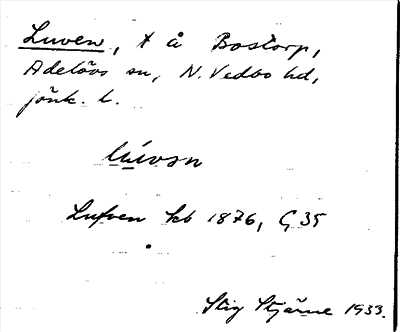 Luven, t å Bostorp,
Adelövs sn, N. Vedbo hd,
jönk. l.
lúvən
Lufven kb 1876, G 35
Stig Stjärne 1933.